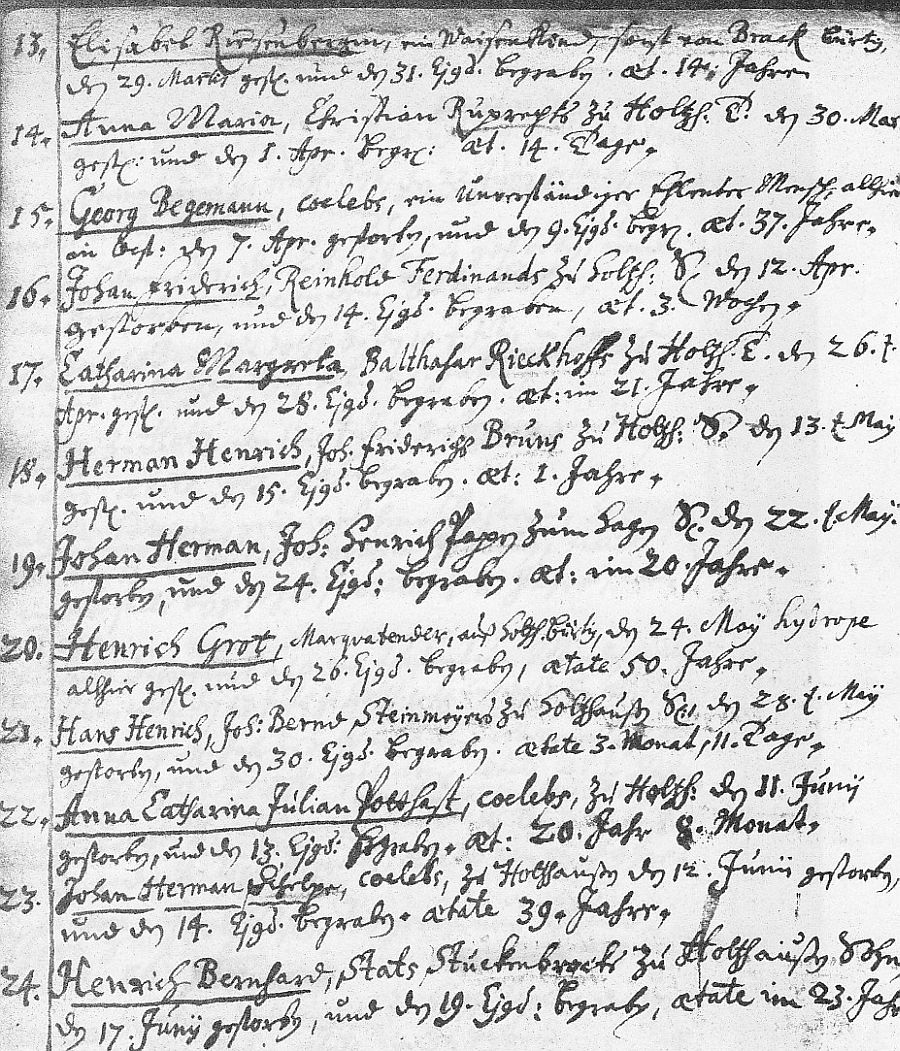 13. Elisabet Riesenbergen, ein Waisenkind, sonst von Brack bürtig,
den 29. Martij gest. und den 31. Ejqs. begraben. æt. 14. Jahren
14. Anna Maria, Christian Ruprechts zu Holtzh. T. den 30. Mar
gest: und den 1. Apr. begr: æt. 14. Tage.
15. Georg Begemann, coelebs, ein unverständiger Ehlenter Mensch, allhier
den 7. Apr. gestorben, und den 9. Ejqs. begr. æt. 37. Jahre.
16. Johan Friderich, Reinhold Ferdinands zu Holtzh: S. den 12. Apr.
gestorben, und den 14. Ejqs. begraben, æt. 3. Wochen.
17. Catharina Margreta, Balthasar Rieckhoffs zu Holtzh. T. den 26. t.
Apr. gest. und den 28. Ejqs. begraben. æt: im 21. Jahre.
18. Herman Henrich, Joh. Friderichs Bruns zu Holtzh: S. den 13. t. May
gest. und den 15. Ejqs. begraben. æt: 1. Jahre.
19. Johan Herman, Joh: Henrich Papen zum Hagen S. den 22. t. May.
gestorben, und den 24. Ejqs: begraben. æt: im 20. Jahre.
20. Henrich Grot, Marquatender, auß Holtzh. bürtig, den 24. May hydrope
allhier gest. und den 26. Ejqs. begraben, ætate 50. Jahre.
21. Hans Henrich, Joh: Bernd Steinmeyers zu Holtzhausen S. den 28. t. May
gestorben, und den 30. Ejqs. begraben. ætate 3. Monat, 11. Tage.
22. Anna Catharina Julian Potthast, coelebs, zu Holtzh: den 11. Junij
gestorben, und den 13. Ejqs: begraben. æt: 20. Jahr 8. Monat.
23. Johan Herman, coelebs, zu Holtzhausen den 12. Junij gestorben,
und den 14. Ejqs. begraben. ætate 39. Jahre.
24. Henrich Bernhard, Stats Stuckenbrocks zu Holtzhausen Sohn
den 17. Junij gestorben, und den 19. Ejqs: begraben, ætate im 23. Jahr